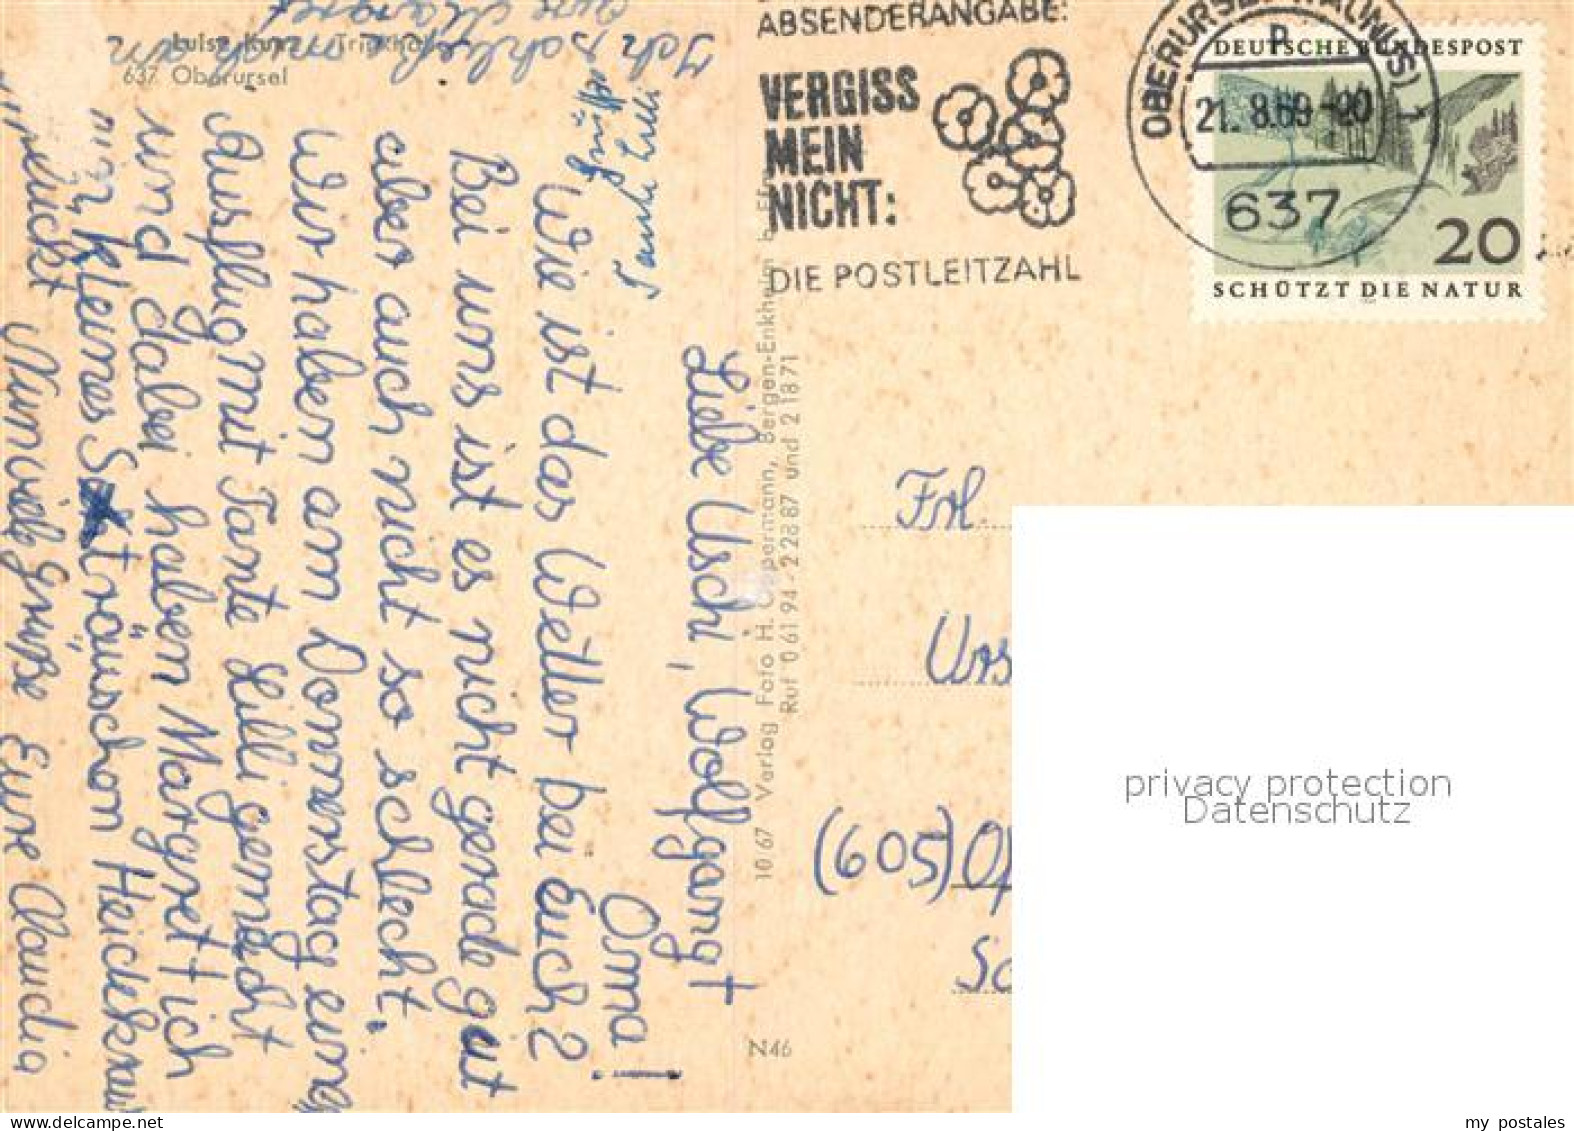 Luise Kurz Trinkhalle
637 Oberursel
ABSENDERANGABE:
VERGISS
MEIN
NICHT:
DIE POSTLEITZAHL
OBERURSEL (TAUNUS) 1
21. 8.69-20
637
DEUTSCHE BUNDESPOST
20
SCHÜTZT DIE NATUR
Liebe Uschi, Wolfgang +
Oma!
Wie ist das Wetter bei Euch?
Bei uns ist es nicht gerade gut
aber auch nicht so schlecht.
Wir haben am Donnerstag eine
Ausflug mit Tante Lilli gemacht
und dabei haben Margret + ich
ein kleines Sträuschen Heidekraut
gepflückt. Nun viele Grüße Eure Claudia
Ich schließe mich an
eure Margret
Grüße
Tante Lilli
10 67 Verlag Foto H. Coppermann, Bergen-Enkheim b. Ffm
Ruf 0 61 94 - 2 28 87 und 2 18 71
N46
Frl.
Urs
(605) Of
Sc
privacy protection
Datenschutz
my postales